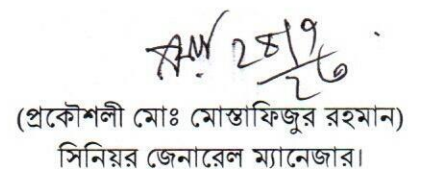 ২৪/৭
(প্রকৌশলী মোঃ মোস্তাফিজুর রহমান)
সিনিয়র জেনারেল ম্যানেজার।